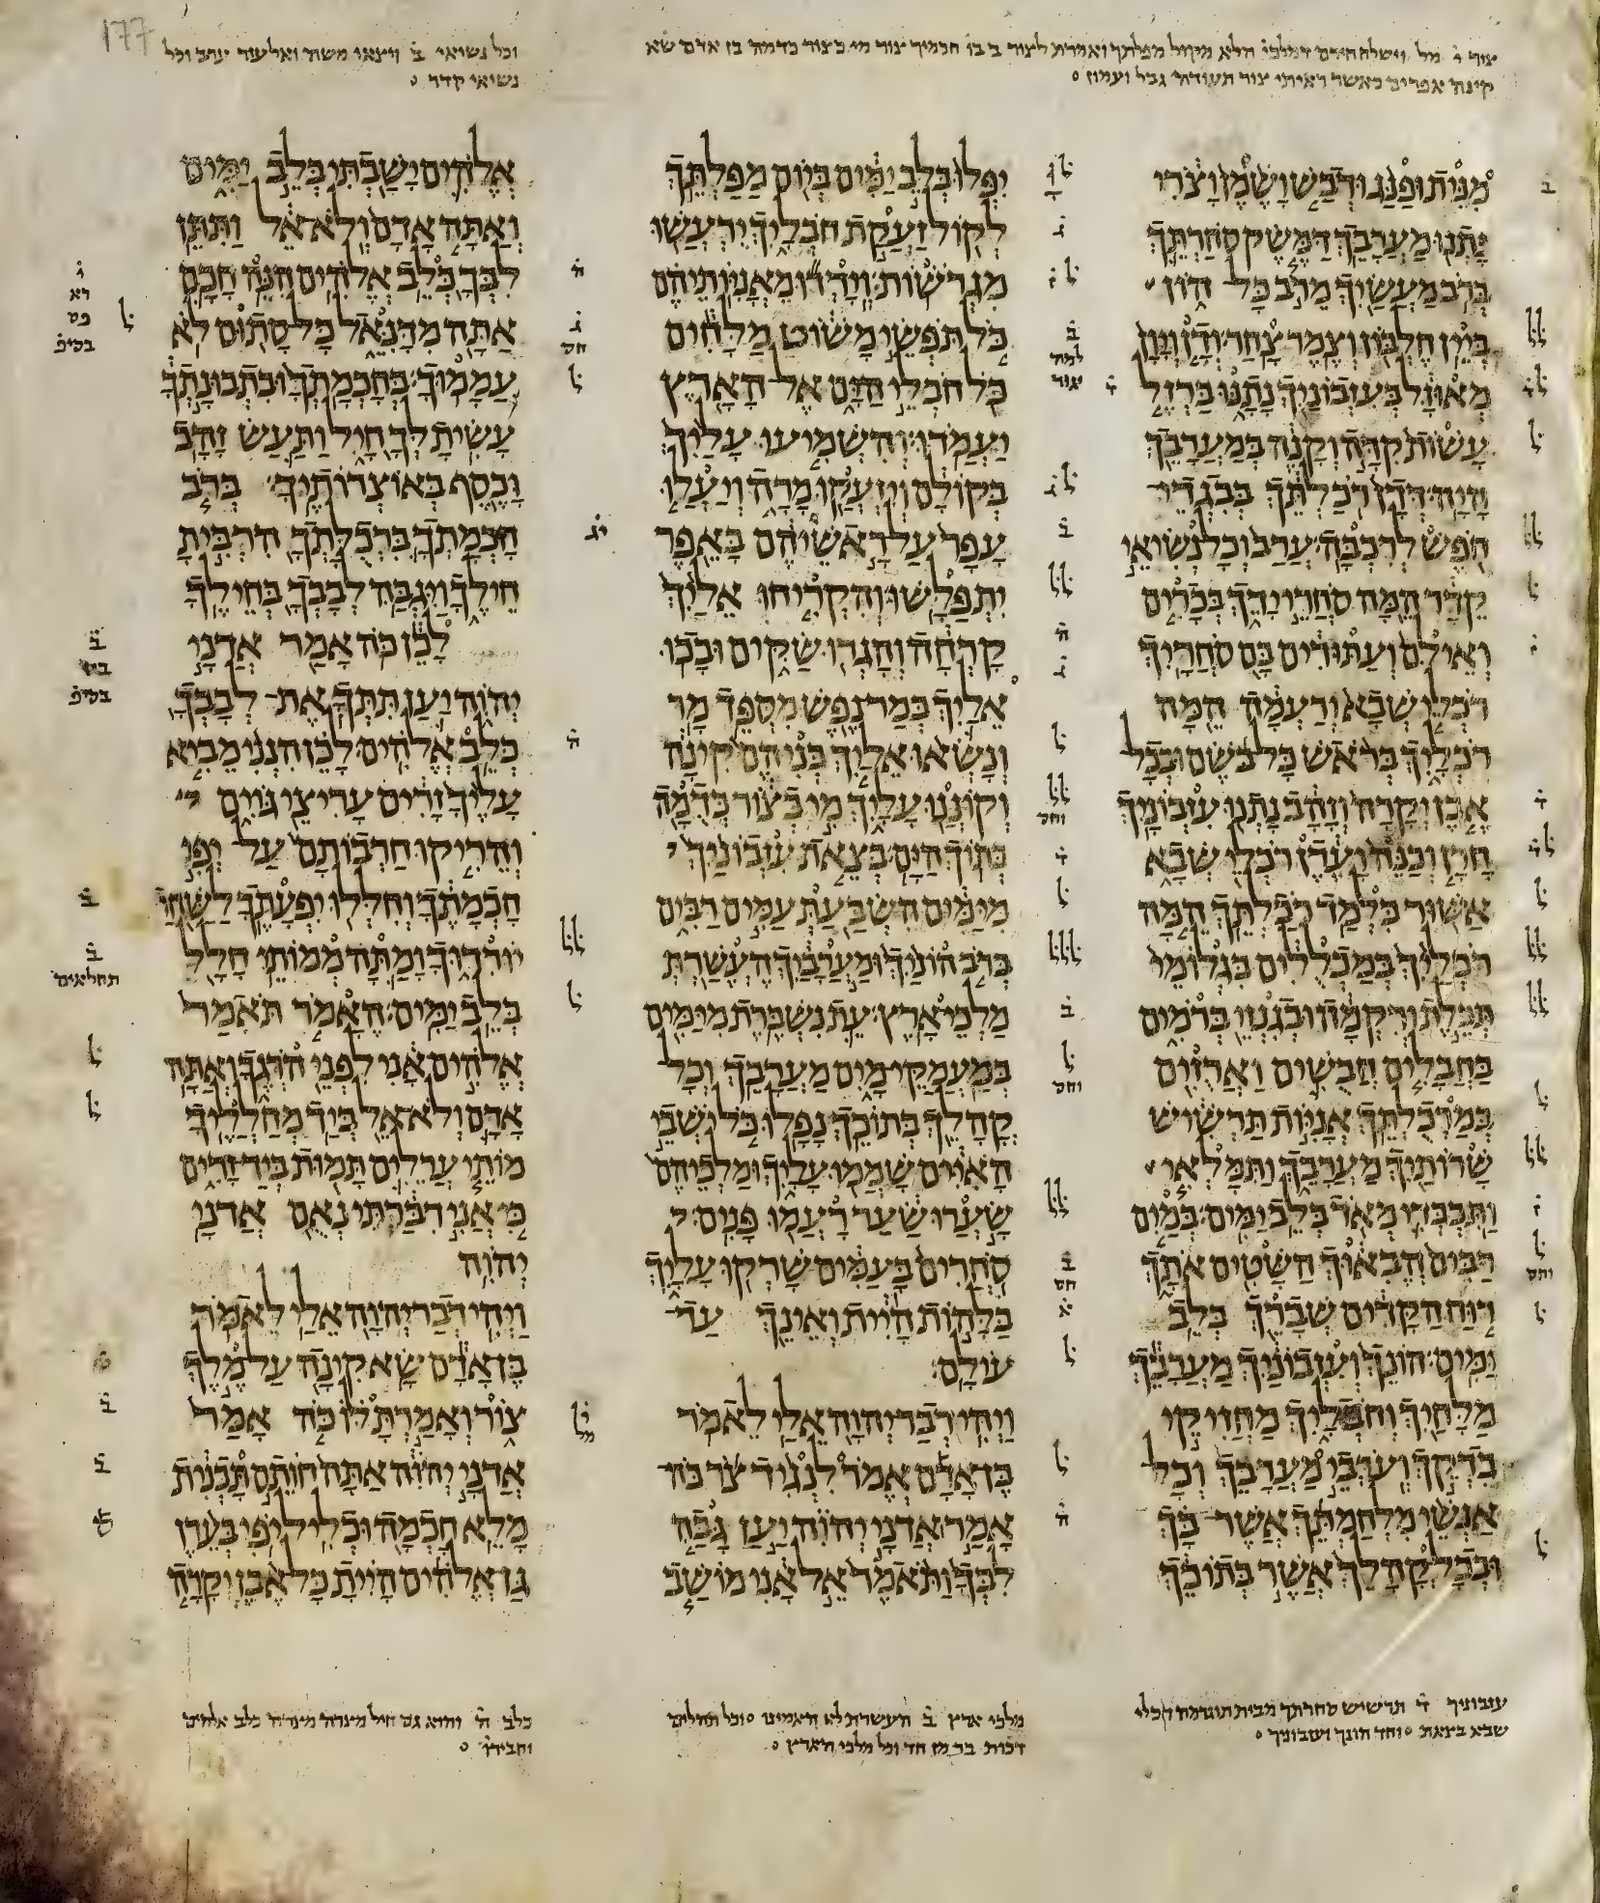 177
צור ו מל וישלח חירם דמלכ הלא מקול מפלתך ואמרת לצור ב בו חכמיך צור מי כצור כדמה בן אדם שא
קינה אפרים כאשר ראיתי צור גבל ועמון
וכל נשיאי ב ויצאו משה ואלעזר ערב וכל
נשיאי קדר
מנית ופנג ודבש ושמן וצרי
נתנו מערבך דמשק סחרתך
ברב מעשיך מרב כל הון
ביין חלבון וצמר צחר ודן ויון
מאוזל בעזבוניך נתנו ברזל
עשות קדה וקנה במערבך
היה דדן רכלתך בבגדי
חפש לרכבה ערב וכל נשיאי
קדר המה סחרי ידך בכרים
ואילם ועתודים בם סחריך
רכלי שבא ורעמה המה
רכליך בראש כל בשם ובכל
אבן יקרה וזהב נתנו עזבוניך
חרן וכנה ועדן רכלי שבא
אשור כלמד רכלתך המה
רכליך במכללים בגלומי
תכלת ורקמה ובגנזי ברמים
בחבלים חבשים וארזים
במרכלתך אניות תרשיש
שרותיך מערבך ותמלאי
ותכבדי מאד בלב ימים במים
רבים הביאוך השטים אתך
רוח הקדים שברך בלב
ימים הונך ועזבוניך מערבך
מלחיך וחבליך מחזיקי
בדקך וערבי מערבך וכל
אנשי מלחמתך אשר בך
ובכל קהלך אשר בתוכך
יפלו בלב ימים ביום מפלתך
לקול זעקת חבליך ירעשו
מגרשות וירדו מאניותיהם
כל תפשי משוט מלחים
כל חבלי הים אל הארץ
יעמדו והשמיעו עליך
בקולם ויזעקו מרה ויעלו
עפר על ראשיהם באפר
יתפלשו והקריחו אליך
קרחה וחגרו שקים ובכו
אליך במר נפש מספד מר
ונשאו אליך בניהם קינה
וקוננו עליך מי כצור כדמה
בתוך הים בצאת עזבוניך
מימים השבעת עמים רבים
ברב הוניך ומערביך העשרת
מלכי ארץ עת נשברת מימים
במעמקי מים מערבך וכל
קהלך בתוכך נפלו כל ישבי
האיים שממו עליך ומלכיהם
שערו שער רעמו פנים
סחרים בעמים שרקו עליך
בלהות היית ואינך עד
עולם
ויהי דבר יהוה אלי לאמר
בן אדם אמר לנגיד צר כה
אמר אדני יהוה יען גבה
לבך ותאמר אל אני מושב
אלהים ישבתי בלב ימים
ואתה אדם ולא אל ותתן
לבך כלב אלהים הנה חכם
אתה מדנאל כל סתום לא
עממוך בחכמתך ובתבונתך
עשית לך חיל ותעש זהב
וכסף באוצרותיך ברב
חכמתך ברכלתך הרבית
חילך ויגבה לבבך בחילך
לכן כה אמר אדני
יהוה יען תתך את לבבך
כלב אלהים לכן הנני מביא
עליך זרים עריצי גוים
והריקו חרבותם על יפי
חכמתך וחללו יפעתך לשחת
יורדוך ומתה ממותי חלל
בלב ימים האמר תאמר
אלהים אני לפני הרגך ואתה
אדם ולא אל ביד מחלליך
מותי ערלים תמות ביד זרים
כי אני דברתי נאם אדני
יהוה
ויהי דבר יהוה אלי לאמר
בן אדם שא קינה על מלך
צור ואמרת לו כה אמר
אדני יהוה אתה חותם תכנית
מלא חכמה וכליל יפי בעדן
גן אלהים היית כל אבן יקרה
עזבוניך ד תרשיש סחרתך מבית תוגרמה רכלי
שבא בצאת וחד הונך ועזבוניך
מלכי ארץ ב העשרת לא האמינו וכל תהלים
דכות בר מן חד וכל מלכי הארץ
כלב ה והוא גם חיל מיגדה מיגדה כלב אלהים
וחביר